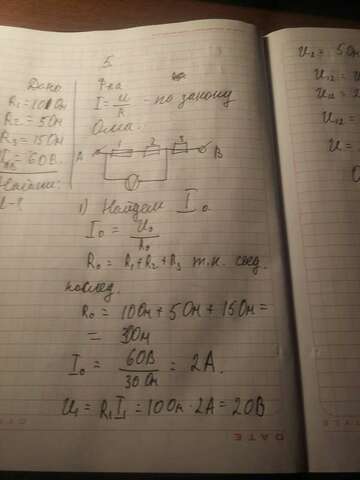 5
Дано
R₁ = 10 Ом
R₂ = 5 Ом
R₃ = 15 Ом
= 60 В.
Найти:
U-?
Ф-ка
I = U/R - по закону
Ома.
A 1 2 3 B
1) Найдем I₀
I₀ = U₀/R₀
R₀ = R₁ + R₂ + R₃ т.к. соед.
послед.
R₀ = 10 Ом + 5 Ом + 15 Ом =
= 30 Ом
I₀ = 60 В/30 Ом = 2 А.
U₁ = R₁I₁ = 10 Ом · 2 А = 20 В
U₂ = 5 Ом
U₁₂ =
U₁₂ =
U =
DATE